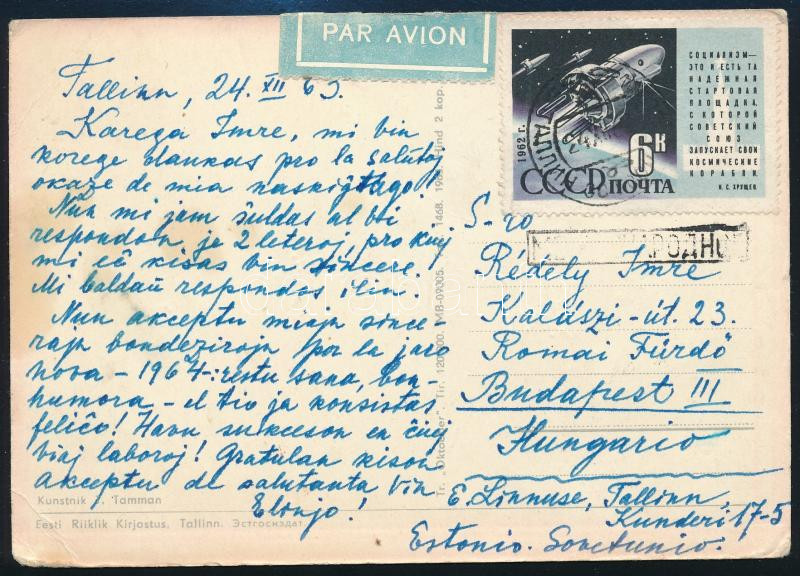 PAR AVION
Tallinn, 24. XII 63.
Karega Imre, mi vin
korege dankas pro la salutoj
okaze de mia naskiĝtago!
Nun mi jam ŝuldas al Vi
respondon je 2 leteroj, pro kiuj
mi eĉ kisas Vin sincere!
Mi baldaŭ respondos ilin!
Nun akceptu miajn since-
rajn bondezirojn por la jaro
nova - 1964: restu sana, bon-
humora - el tio ja konsistas
feliĉo! Havu sukceson en ĉiuj
viaj laboroj! Gratulan kison
akceptu de salutanta Vin
Elonjo!
Kunstnik Tamman
Eesti Riiklik Kirjastus, Tallinn. Эстгосиздат
СОЦИАЛИЗМ—
ЭТО И ЕСТЬ ТА
НАДЁЖНАЯ
СТАРТОВАЯ
ПЛОЩАДКА,
С КОТОРОЙ
СОВЕТСКИЙ
СОЮЗ
ЗАПУСКАЕТ СВОИ
КОСМИЧЕСКИЕ
КОРАБЛИ.
Н. С. ХРУЩЕВ
1962 г.
6к
СССР ПОЧТА
S-ro
Rédely Imre
Kalászi-út. 23.
Romai Fürdő
Budapest III
Hungario
E. Linnuse, Tallinn,
Kunderi 17-5
Estonio. Sovetunio.